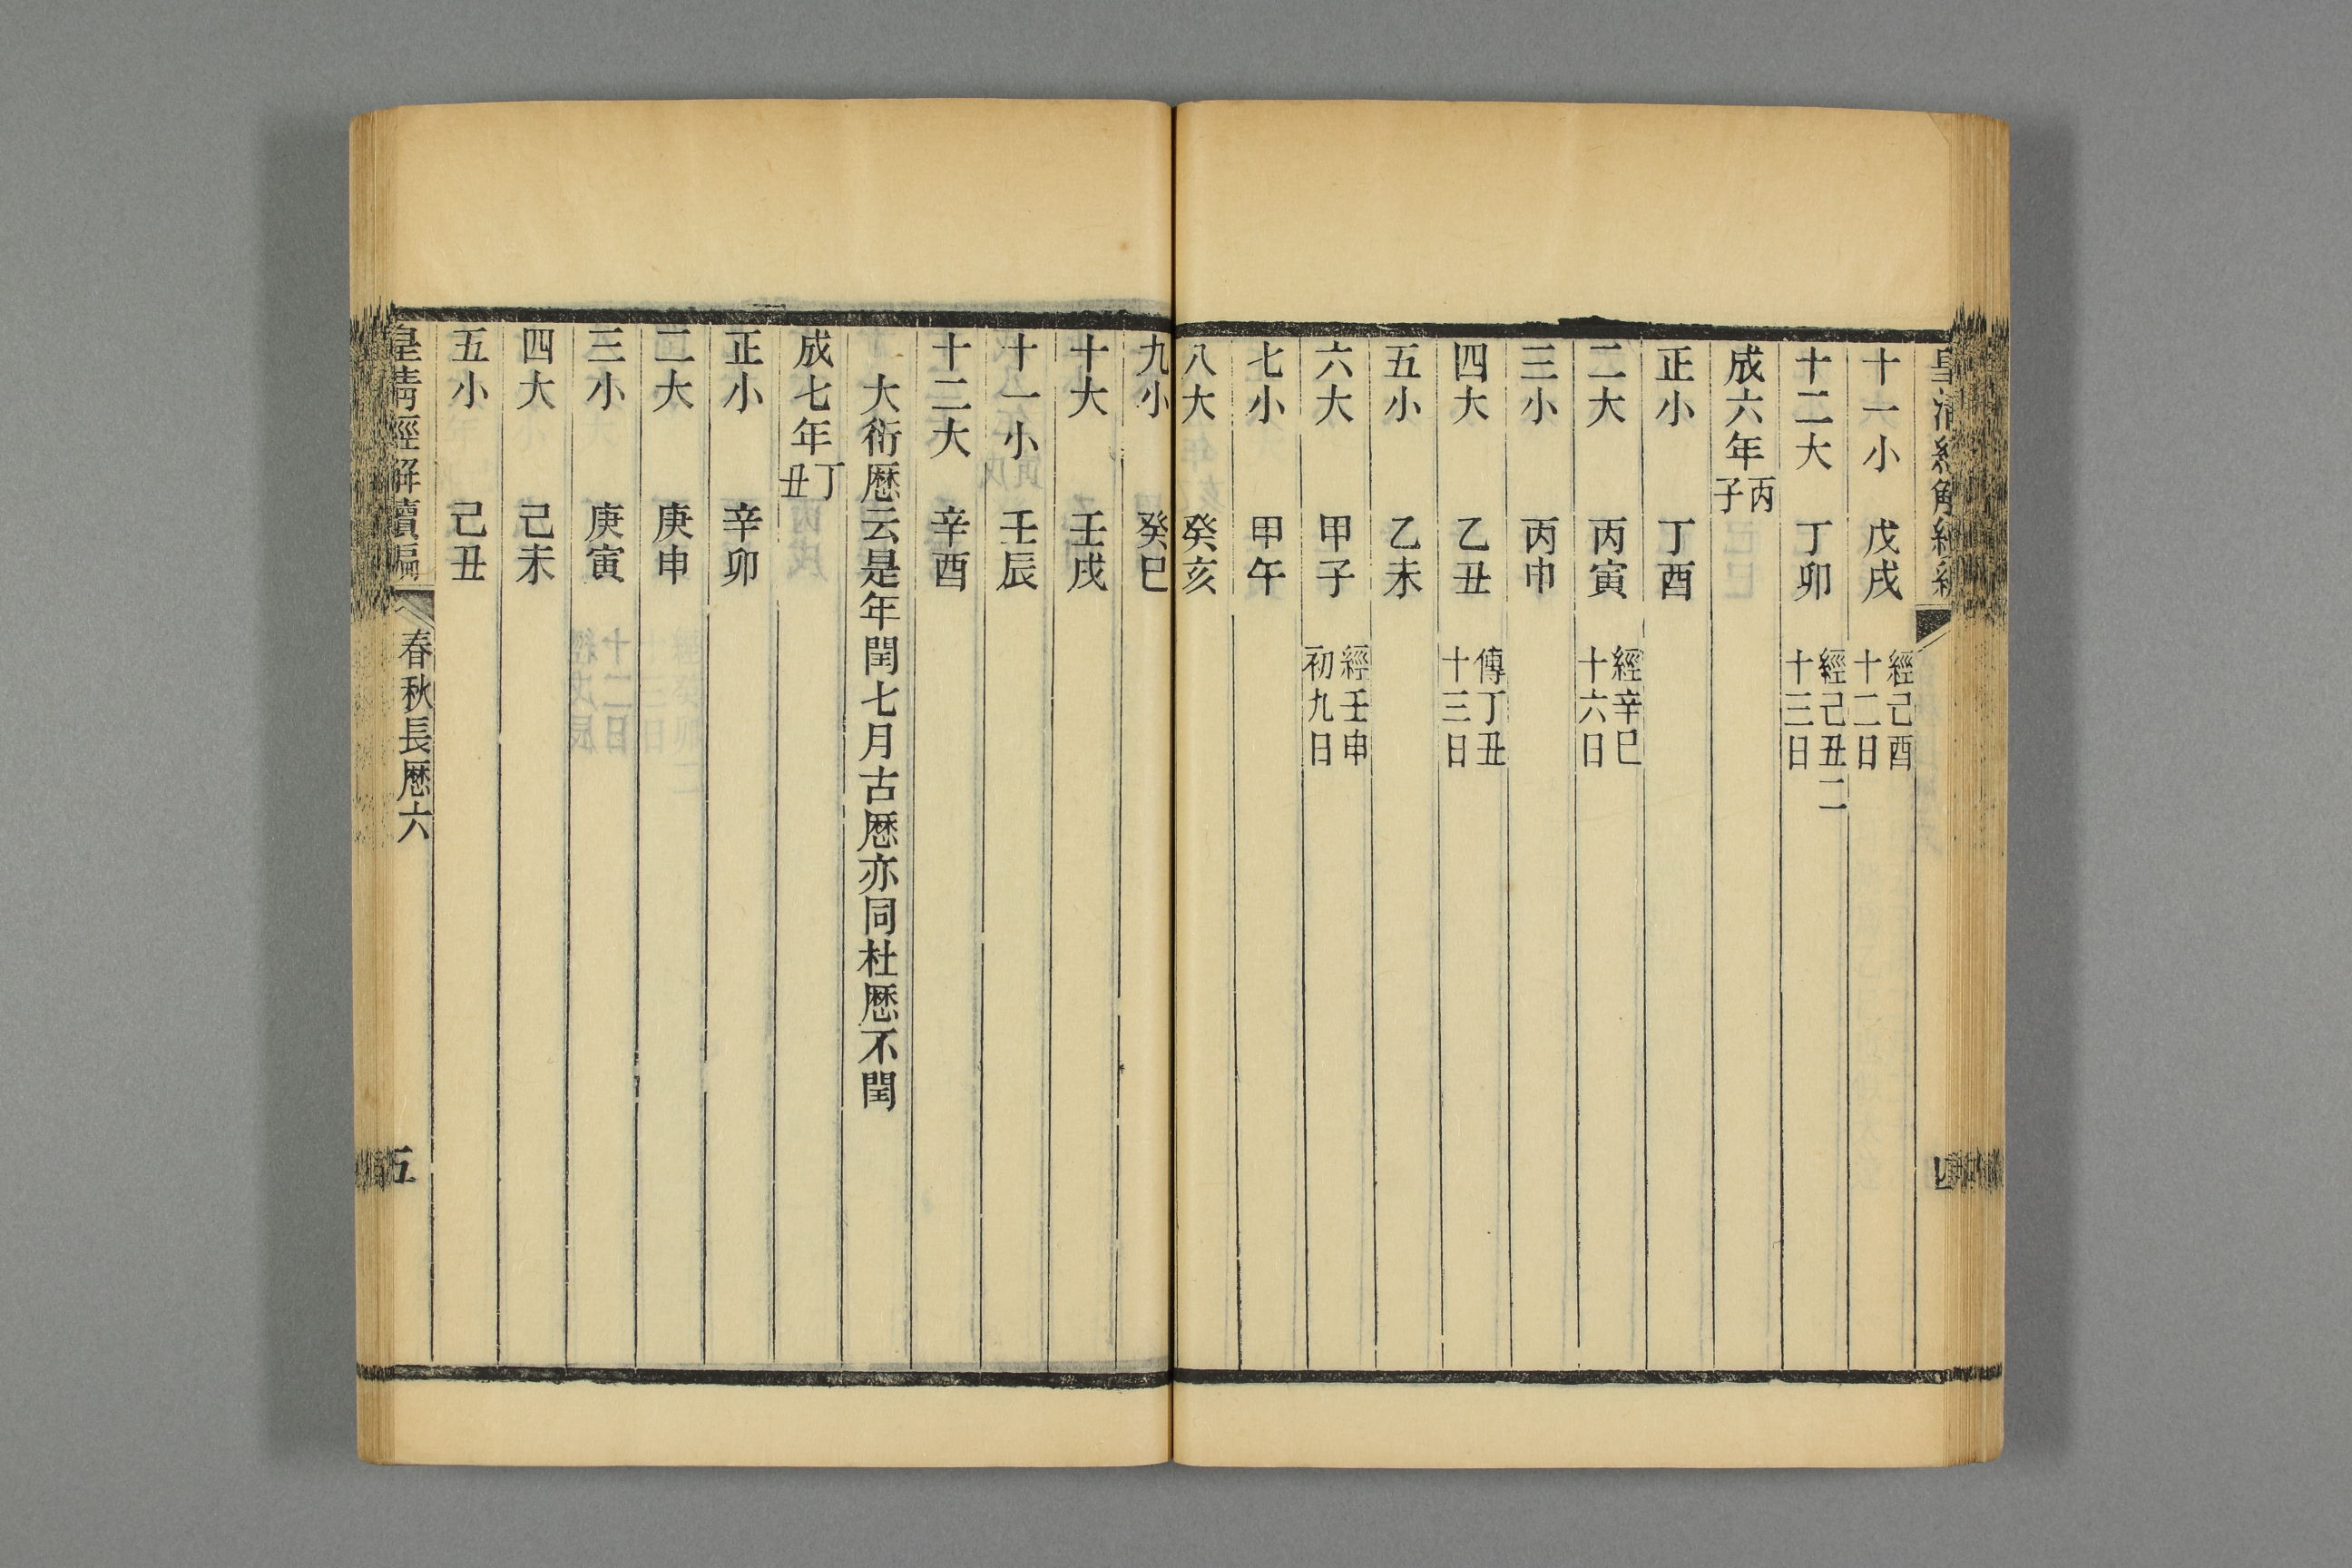 十一小　戊戌　經己酉十二日
十二大　丁卯　經己丑二十三日
成六年丙子
正小　丁酉
二大　丙寅　經辛巳十六日
三小　丙申
四大　乙丑　傳丁丑十三日
五小　乙未
六大　甲子　經壬申初九日
七小　甲午
八大　癸亥
九小　癸巳
十大　壬戌
十一小　壬辰
十二大　辛酉
大衍厯云是年閏七月古厯亦同杜厯不閏
成七年丁丑
正小　辛卯
二大　庚申
三小　庚寅
四大　己未
五小　己丑
皇清經解續編　春秋長厯六　五